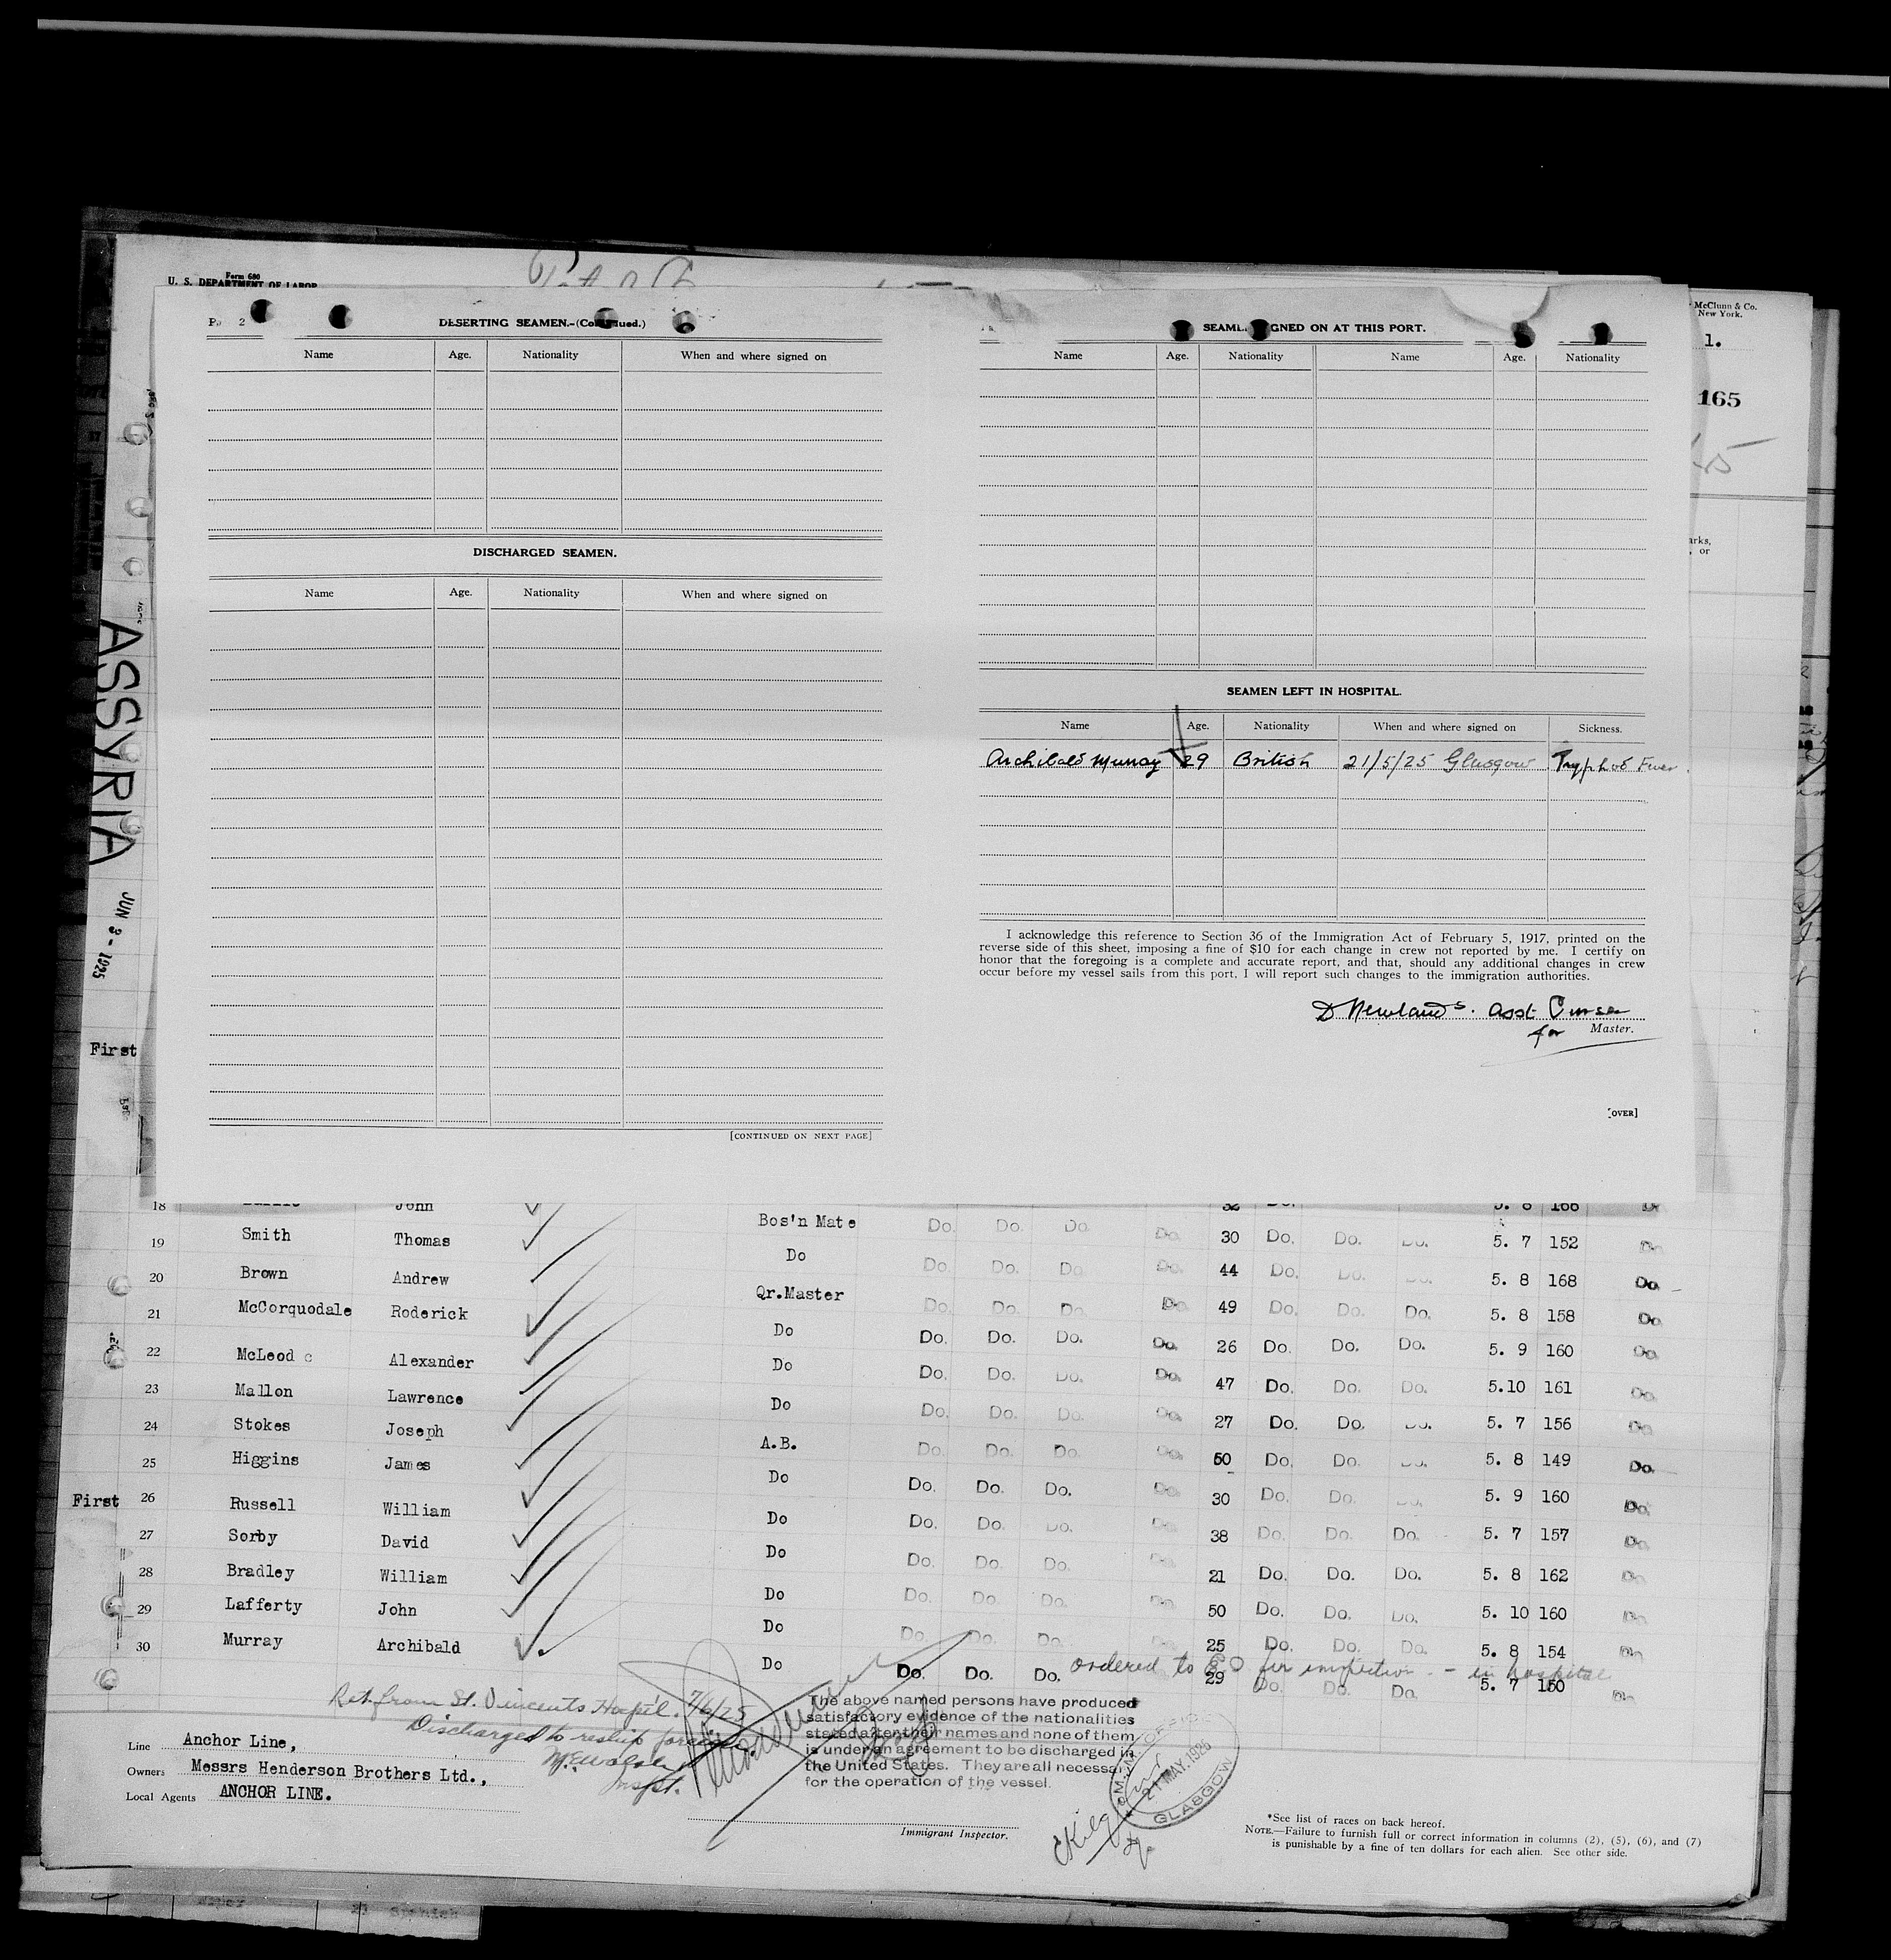 Form 680
U. S. DEPARTMENT OF LABOR
McClunn & Co.
New York.
1.
165
2
DESERTING SEAMEN.-(Continued.)
Name Age. Nationality When and where signed on
DISCHARGED SEAMEN.
Name Age. Nationality When and where signed on
[CONTINUED ON NEXT PAGE]
SIGNED ON AT THIS PORT.
Name Age. Nationality Name Age. Nationality
SEAMEN LEFT IN HOSPITAL.
Name Age. Nationality When and where signed on Sickness.
Archibald Murray 29 British 21/5/25 Glasgow
I acknowledge this reference to Section 36 of the Immigration Act of February 5, 1917, printed on the
reverse side of this sheet, imposing a fine of $10 for each change in crew not reported by me. I certify on
honor that the foregoing is a complete and accurate report, and that, should any additional changes in crew
occur before my vessel sails from this port, I will report such changes to the immigration authorities.
D Newlands. Asst Purser
for Master.
[OVER]
ASSYRIA
JUN 3 - 1925
First
18 John 32 Do. 5. 8 166
19 Smith Thomas Bos'n Mate Do. Do. Do. Do. 30 Do. Do. Do. 5. 7 152 Do
20 Brown Andrew Do Do. Do. Do. Do. 44 Do. Do. Do. 5. 8 168 Do.
21 McCorquodale Roderick Qr.Master Do. Do. Do. Do. 49 Do. Do. Do. 5. 8 158 Do.
22 McLeod Alexander Do Do. Do. Do. Do. 26 Do. Do. Do. 5. 9 160 Do.
23 Mallon Lawrence Do Do. Do. Do. Do. 47 Do. Do. Do. 5.10 161 Do.
24 Stokes Joseph Do Do. Do. Do. Do. 27 Do. Do. Do. 5. 7 156 Do.
25 Higgins James A.B. Do. Do. Do. Do. 50 Do. Do. Do. 5. 8 149 Do.
First 26 Russell William Do Do. Do. Do. Do. 30 Do. Do. Do. 5. 9 160 Do.
27 Sorby David Do Do. Do. Do. Do. 38 Do. Do. Do. 5. 7 157 Do.
28 Bradley William Do Do. Do. Do. Do. 21 Do. Do. Do. 5. 8 162 Do.
29 Lafferty John Do Do. Do. Do. Do. 50 Do. Do. Do. 5. 10 160 Do.
30 Murray Archibald Do Do. Do. Do. Do. 25 Do. Do. Do. 5. 8 154 Do.
Do Do. Do. Do. 29 Do. Do. Do. 5. 7 150 Do.
ordered to for inspection - in hospital
Ret from St. Vincents Hospil. 7/6/25
Discharged to reship foreign.
Inspt.
The above named persons have produced
satisfactory evidence of the nationalities
stated after their names and none of them
is under an agreement to be discharged in
the United States. They are all necessary
for the operation of the vessel.
21 MAY.1925
GLASGOW
Line Anchor Line,
Owners Messrs Henderson Brothers Ltd.,
Local Agents ANCHOR LINE.
Immigrant Inspector.
*See list of races on back hereof.
NOTE.—Failure to furnish full or correct information in columns (2), (5), (6), and (7)
is punishable by a fine of ten dollars for each alien. See other side.